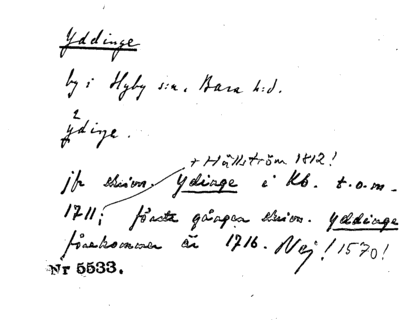 Yddinge
by i Hyby s:n, Bara h:d.
2
ydiŋe.
+ Hällström 1812!
jfr skrivn. Ydinge i Kb. t.o.m.
1711; första gången skrivn. Yddinge
förekommer är 1716. Nej! 1570!
Nr 5533.